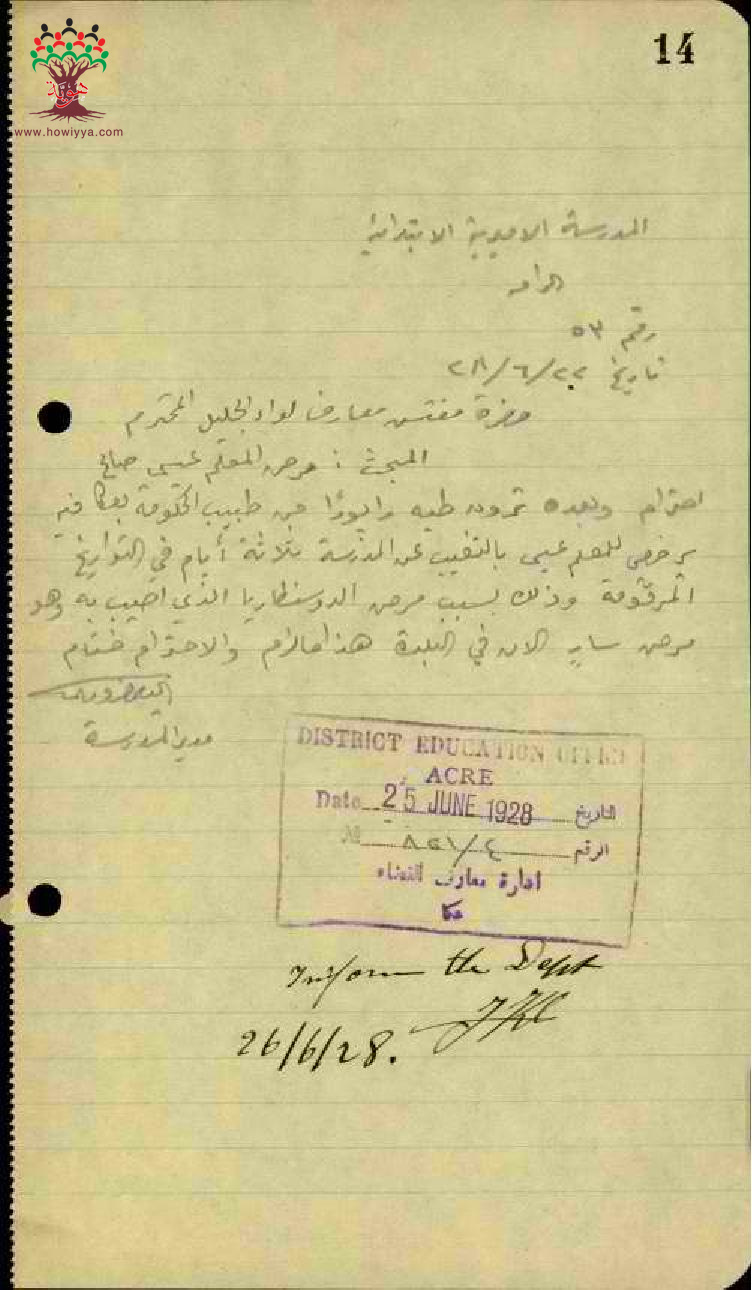 14
هوية
www.howiyya.com
المدرسة الاميرية الابتدائية
الرامه
رقم ٥٣
تاريخ ٢٢/٦/٢٨
حضرة مفتش معارف لواء الجليل المحترم
المبحث : مرض المعلم عيسى صالح
احترام وبعده ترون طيه رابورًا من طبيب الحكومة بعكا فيه
يرخص للمعلم عيسى بالتغيب عن المدرسة ثلاثة أيام في التواريخ
المرقومة وذلك بسبب مرض الدوسنطاريا الذي اصيب به وهو
مرض سارٍ الان في البلدة هذا مالزم والاحترام ختام
مدير المدرسة
DISTRICT EDUCATION OFFICE
ACRE
Date 25 JUNE 1928 التاريخ
№ ٨٢١/٤ الرقم
ادارة معارف القضاء
عكا
Inform the Dept
26/6/28.